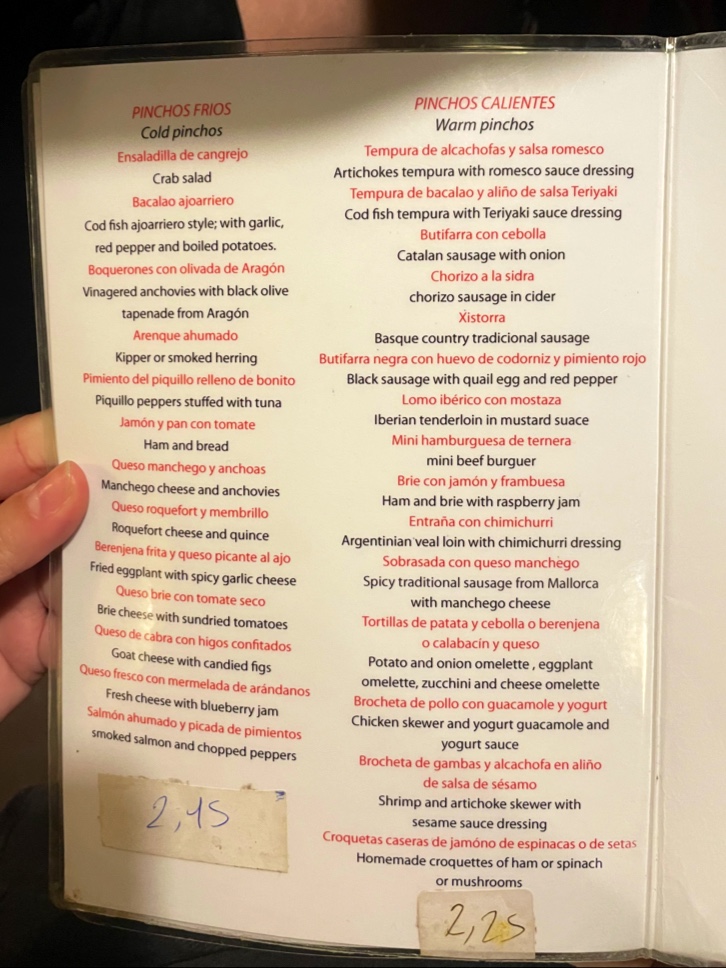 PINCHOS FRIOS
Cold pinchos
Ensaladilla de cangrejo
Crab salad
Bacalao ajoarriero
Cod fish ajoarriero style; with garlic,
red pepper and boiled potatoes.
Boquerones con olivada de Aragón
Vinagered anchovies with black olive
tapenade from Aragón
Arenque ahumado
Kipper or smoked herring
Pimiento del piquillo relleno de bonito
Piquillo peppers stuffed with tuna
Jamón y pan con tomate
Ham and bread
Queso manchego y anchoas
Manchego cheese and anchovies
Queso roquefort y membrillo
Roquefort cheese and quince
Berenjena frita y queso picante al ajo
Fried eggplant with spicy garlic cheese
Queso brie con tomate seco
Brie cheese with sundried tomatoes
Queso de cabra con higos confitados
Goat cheese with candied figs
Queso fresco con mermelada de arándanos
Fresh cheese with blueberry jam
Salmón ahumado y picada de pimientos
smoked salmon and chopped peppers
2,15
PINCHOS CALIENTES
Warm pinchos
Tempura de alcachofas y salsa romesco
Artichokes tempura with romesco sauce dressing
Tempura de bacalao y aliño de salsa Teriyaki
Cod fish tempura with Teriyaki sauce dressing
Butifarra con cebolla
Catalan sausage with onion
Chorizo a la sidra
chorizo sausage in cider
Xistorra
Basque country traditional sausage
Butifarra negra con huevo de codorniz y pimiento rojo
Black sausage with quail egg and red pepper
Lomo ibérico con mostaza
Iberian tenderloin in mustard suace
Mini hamburguesa de ternera
mini beef burguer
Brie con jamón y frambuesa
Ham and brie with raspberry jam
Entraña con chimichurri
Argentinian veal loin with chimichurri dressing
Sobrasada con queso manchego
Spicy traditional sausage from Mallorca
with manchego cheese
Tortillas de patata y cebolla o berenjena
o calabacín y queso
Potato and onion omelette , eggplant
omelette, zucchini and cheese omelette
Brocheta de pollo con guacamole y yogurt
Chicken skewer and yogurt guacamole and
yogurt sauce
Brocheta de gambas y alcachofa en aliño
de salsa de sésamo
Shrimp and artichoke skewer with
sesame sauce dressing
Croquetas caseras de jamóno de espinacas o de setas
Homemade croquettes of ham or spinach
or mushrooms
2,25